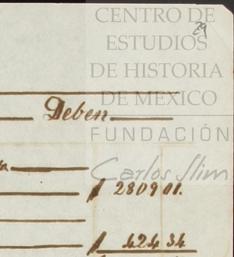 CENTRO DE
29
ESTUDIOS
DE HISTORIA
DE MEXICO
Deben
FUNDACIÓN
Carlos Slim
2809 01.
424 34